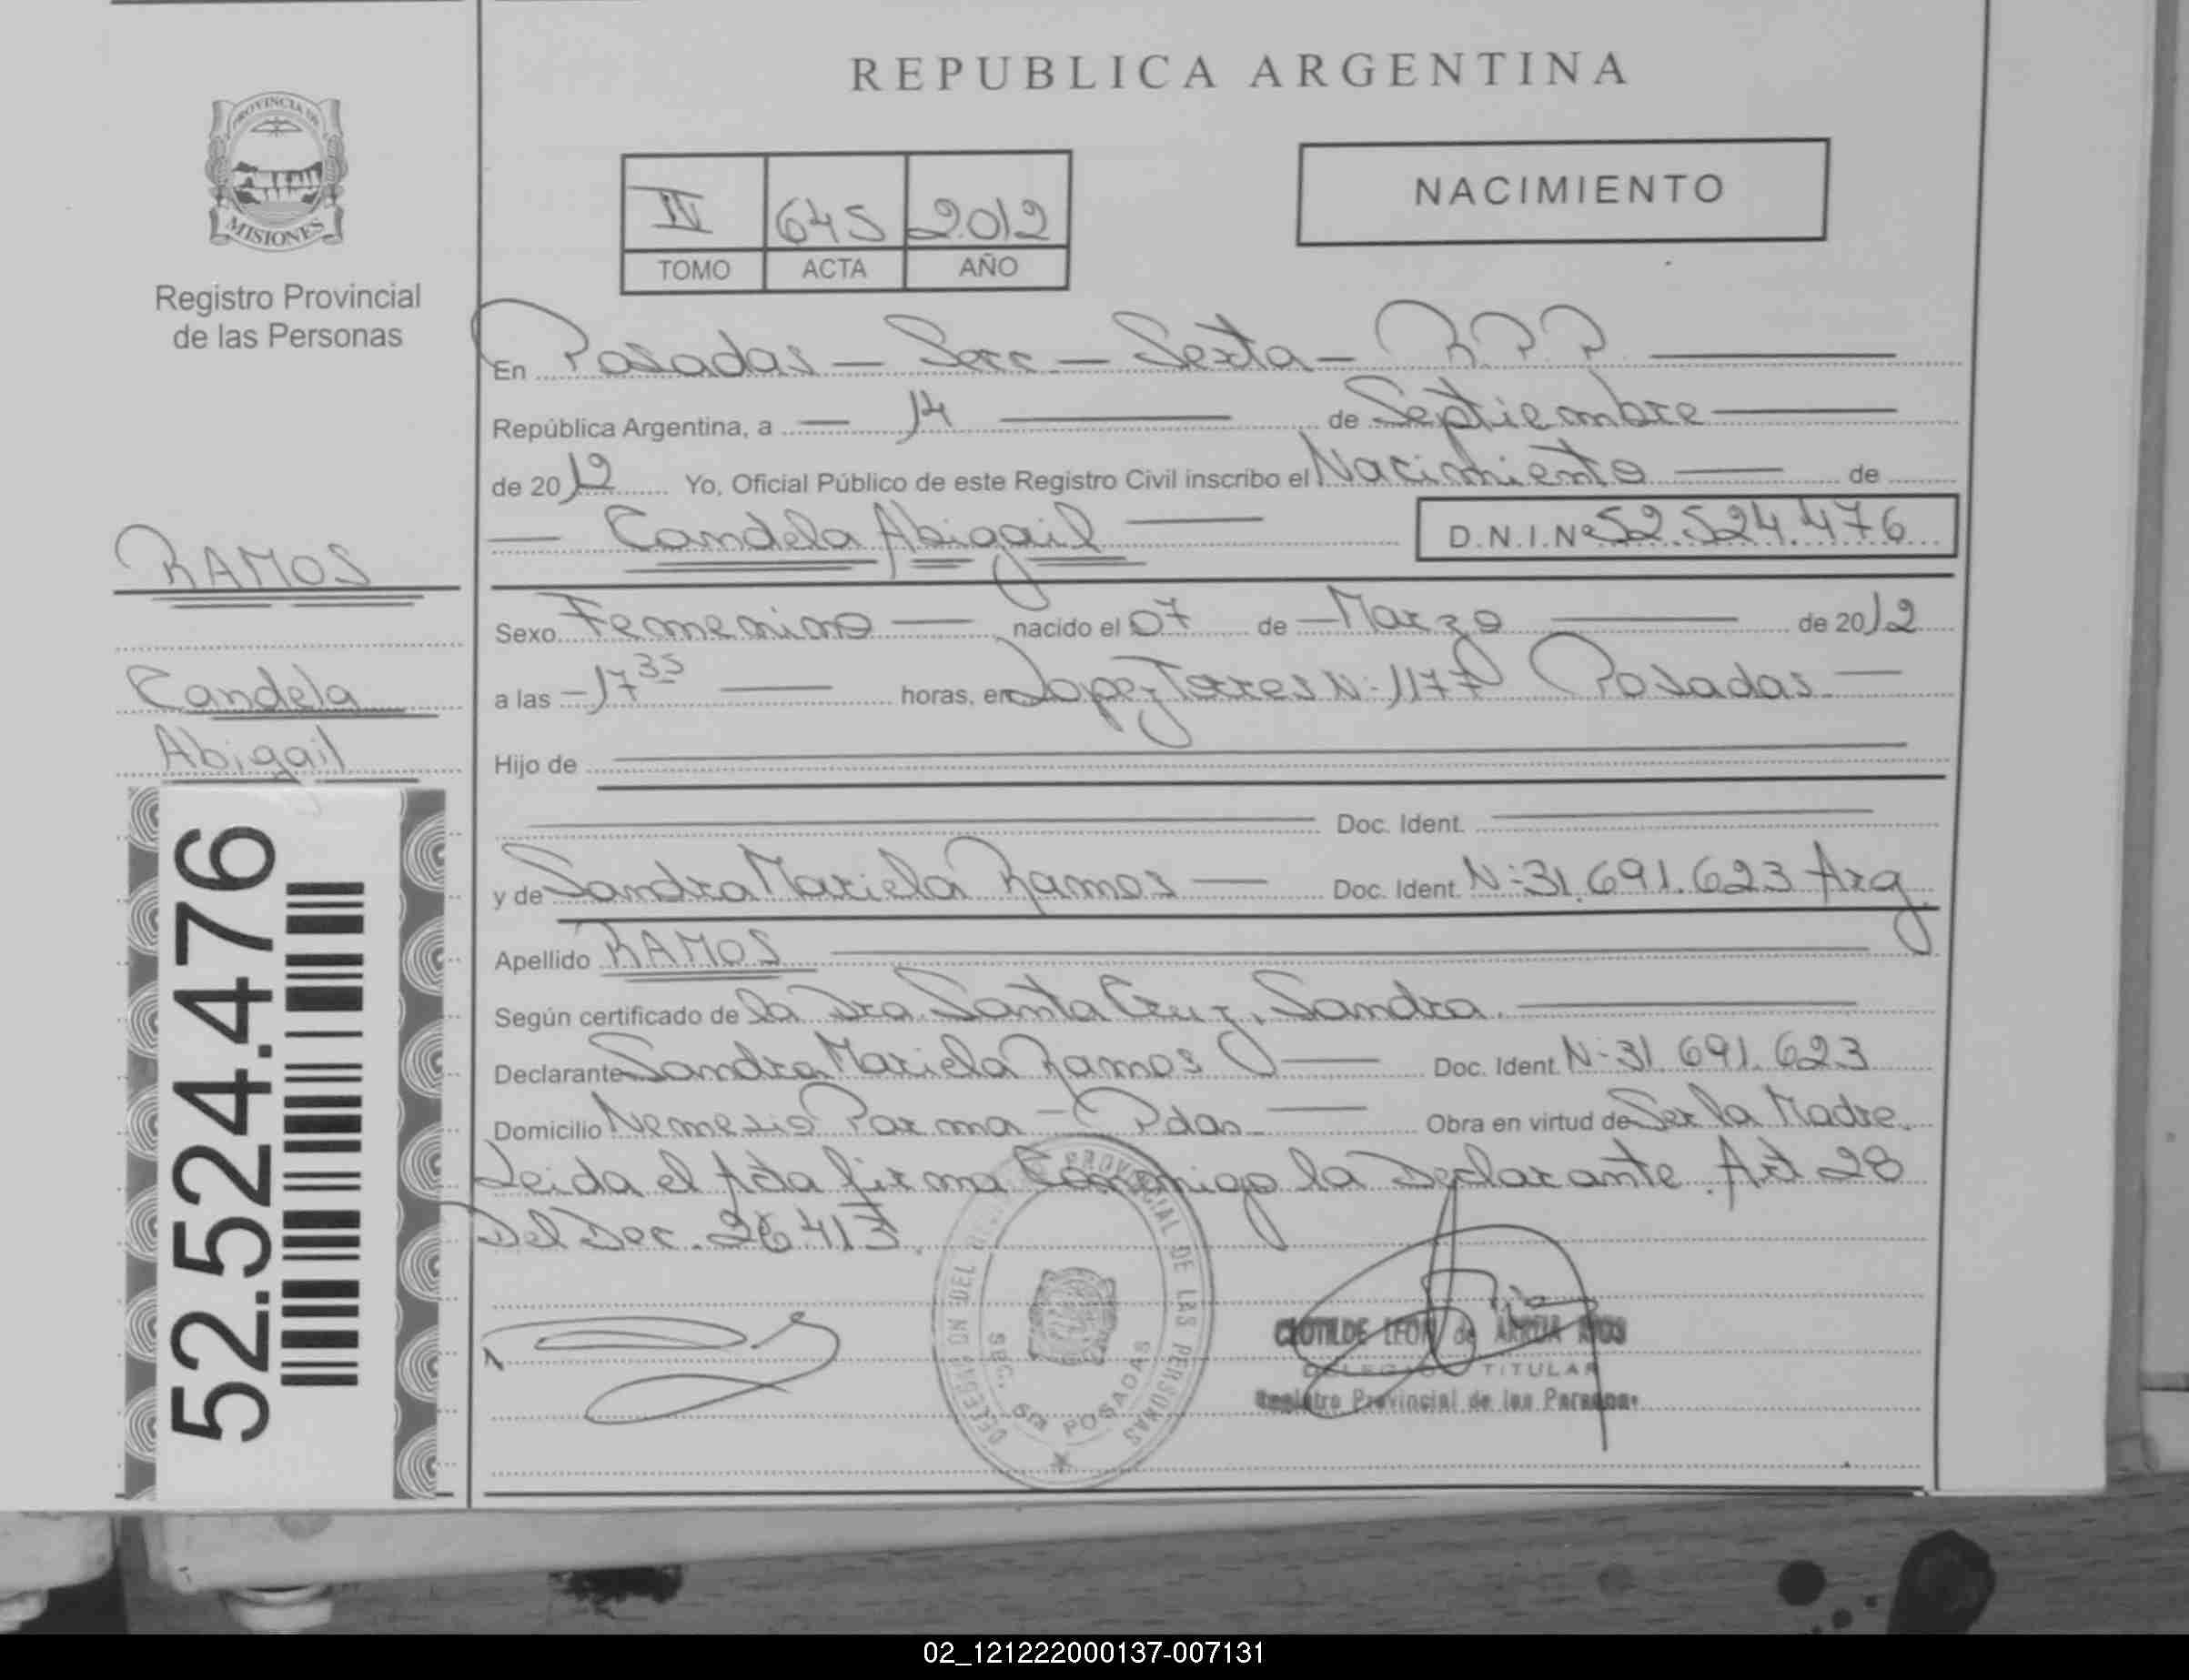 REPUBLICA ARGENTINA
PROVINCIA DE
MISIONES
Registro Provincial
de las Personas
IV 645 2012
TOMO ACTA AÑO
NACIMIENTO
En Posadas - Secc. - Sexta - R.P.P.
República Argentina, a 14 de Septiembre
de 2012 Yo, Oficial Público de este Registro Civil inscribo el Nacimiento de
Candela Abigail D.N.I.Nº 52.524.476
RAMOS
Candela
Abigail
52.524.476
Sexo Femenino nacido el 07 de Marzo de 2012
a las 17 35 horas, en Lopez Torres N- 1177 Posadas
Hijo de
Doc. Ident.
y de Sandra Mariela Ramos Doc. Ident. N- 31.691.623 Arg
Apellido RAMOS
Según certificado de la Dra. Santa Cruz, Sandra.
Declarante Sandra Mariela Ramos Doc. Ident. N- 31.691.623
Domicilio Nemesio Parma - Pdas. Obra en virtud de Ser la Madre.
Leida el Acta firma Conmigo la Declarante. Art 28
Del Dec. 26413.
PROVINCIAL DE LAS PERSONAS
SEC. 6ª POSADAS
CLOTILDE LEON de ARRUA RIOS
DELEGADA TITULAR
Registro Provincial de las Personas
02_121222000137-007131